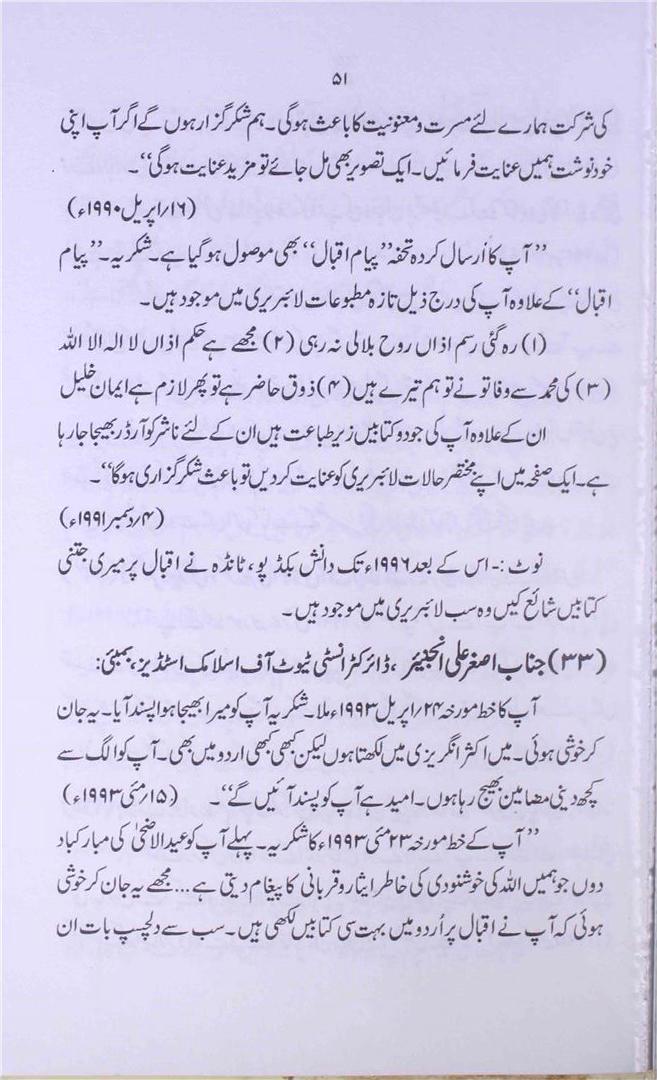 ۵۱
کی شرکت ہمارے لئے مسرت و معنونیت کا باعث ہوگی۔ ہم شکر گزار ہوں گے اگر آپ اپنی
خودنوشت ہمیں عنایت فرمائیں۔ ایک تصویر بھی مل جائے تو مزید عنایت ہوگی‘‘۔
(۱۶/اپریل ۱۹۹۰ء)
’’آپ کا اُرسال کردہ تحفہ ’’پیام اقبال‘‘ بھی موصول ہو گیا ہے۔ شکریہ۔ ’’پیام
اقبال‘‘ کے علاوہ آپ کی درج ذیل تازہ مطبوعات لائبریری میں موجود ہیں۔
(۱) رہ گئی رسم اذاں روح بلالی نہ رہی (۲) مجھے ہے حکم اذاں لا الہ الا اللہ
(۳) کی محمد سے وفا تو نے تو ہم تیرے ہیں (۴) ذوق حاضر ہے تو پھر لازم ہے ایمان خلیل
ان کے علاوہ آپ کی جو دو کتابیں زیر طباعت ہیں ان کے لئے ناشر کو آرڈر بھیجا جا رہا
ہے۔ ایک صفحہ میں اپنے مختصر حالات لائبریری کو عنایت کر دیں تو باعث شکر گزاری ہوگا‘‘۔
(۴/دسمبر ۱۹۹۱ء)
نوٹ :- اس کے بعد ۱۹۹۶ء تک دانش بکڈپو، ٹانڈہ نے اقبال پر میری جتنی
کتابیں شائع کیں وہ سب لائبریری میں موجود ہیں۔
(۳۳) جناب اصغر علی انجینئر، ڈائرکٹر انسٹی ٹیوٹ آف اسلامک اسٹڈیز، بمبئی:
آپ کا خط مورخہ ۲۴/اپریل ۱۹۹۳ء ملا۔ شکریہ آپ کو میرا بھیجا ہوا پسند آیا۔ یہ جان
کر خوشی ہوئی۔ میں اکثر انگریزی میں لکھتا ہوں لیکن کبھی کبھی اردو میں بھی۔ آپ کو الگ سے
کچھ دینی مضامین بھیج رہا ہوں۔ امید ہے آپ کو پسند آئیں گے‘‘۔ (۱۵/مئی ۱۹۹۳ء)
’’آپ کے خط مورخہ ۲۳ مئی ۱۹۹۳ء کا شکریہ۔ پہلے آپ کو عید الاضحیٰ کی مبارکباد
دوں جو ہمیں اللہ کی خوشنودی کی خاطر ایثار و قربانی کا پیغام دیتی ہے... مجھے یہ جان کر خوشی
ہوئی کہ آپ نے اقبال پر اُردو میں بہت سی کتابیں لکھی ہیں۔ سب سے دلچسپ بات ان